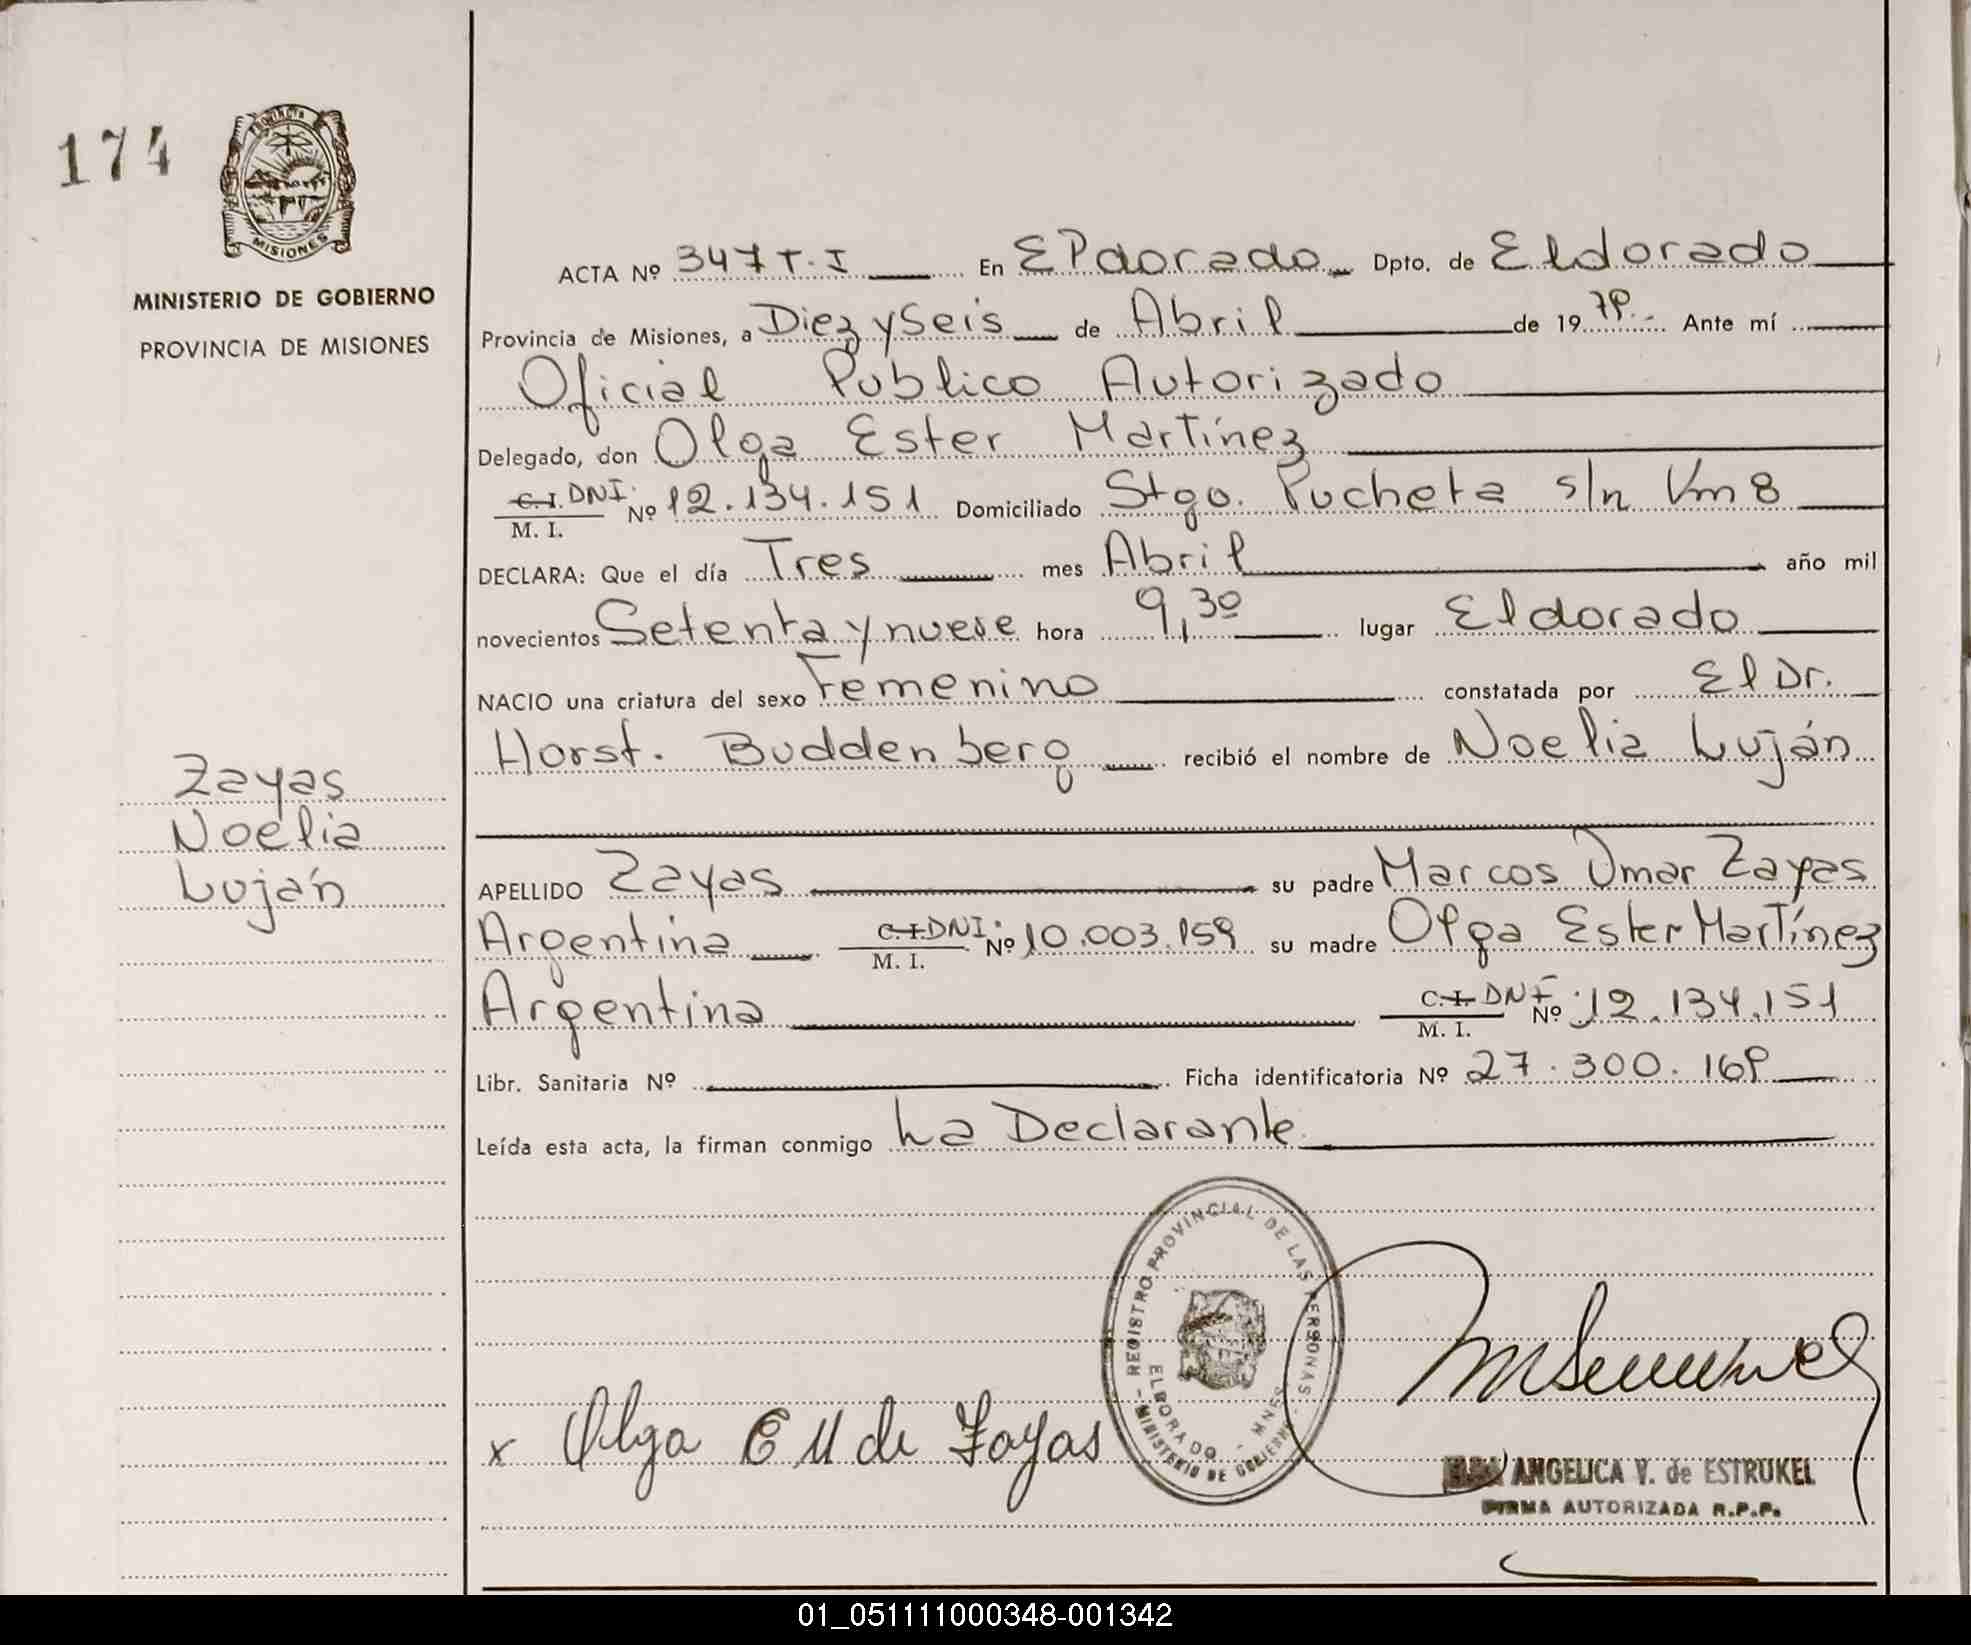 174
PROVINCIA
MISIONES
MINISTERIO DE GOBIERNO
PROVINCIA DE MISIONES
Zayas
Noelia
Luján
ACTA Nº 347 T. I En Eldorado Dpto. de Eldorado
Provincia de Misiones, a Diez y Seis de Abril de 19 79. Ante mí
Oficial Publico Autorizado
Delegado, don Olga Ester Martínez
C.I. DNI. M. I. Nº 12.134.151 Domiciliado Stgo. Pucheta s/n Km 8
DECLARA: Que el día Tres mes Abril año mil
novecientos Setenta y nueve hora 9,30 lugar Eldorado
NACIO una criatura del sexo Femenino constatada por El Dr.
Horst. Buddenberg recibió el nombre de Noelia Luján
APELLIDO Zayas su padre Marcos Omar Zayas
Argentina C.I. DNI. M. I. Nº 10.003.159 su madre Olga Ester Martínez
Argentina C.I. DNI M. I. Nº 12.134.151
Libr. Sanitaria Nº Ficha identificatoria Nº 27.300.169
Leída esta acta, la firman conmigo La Declarante
REGISTRO PROVINCIAL DE LAS PERSONAS
ELDORADO - MNES.
MINISTERIO DE GOBIERNO
x Olga E M de Zayas
ANGELICA V. de ESTRUKEL
FIRMA AUTORIZADA R.P.P.
01_051111000348-001342